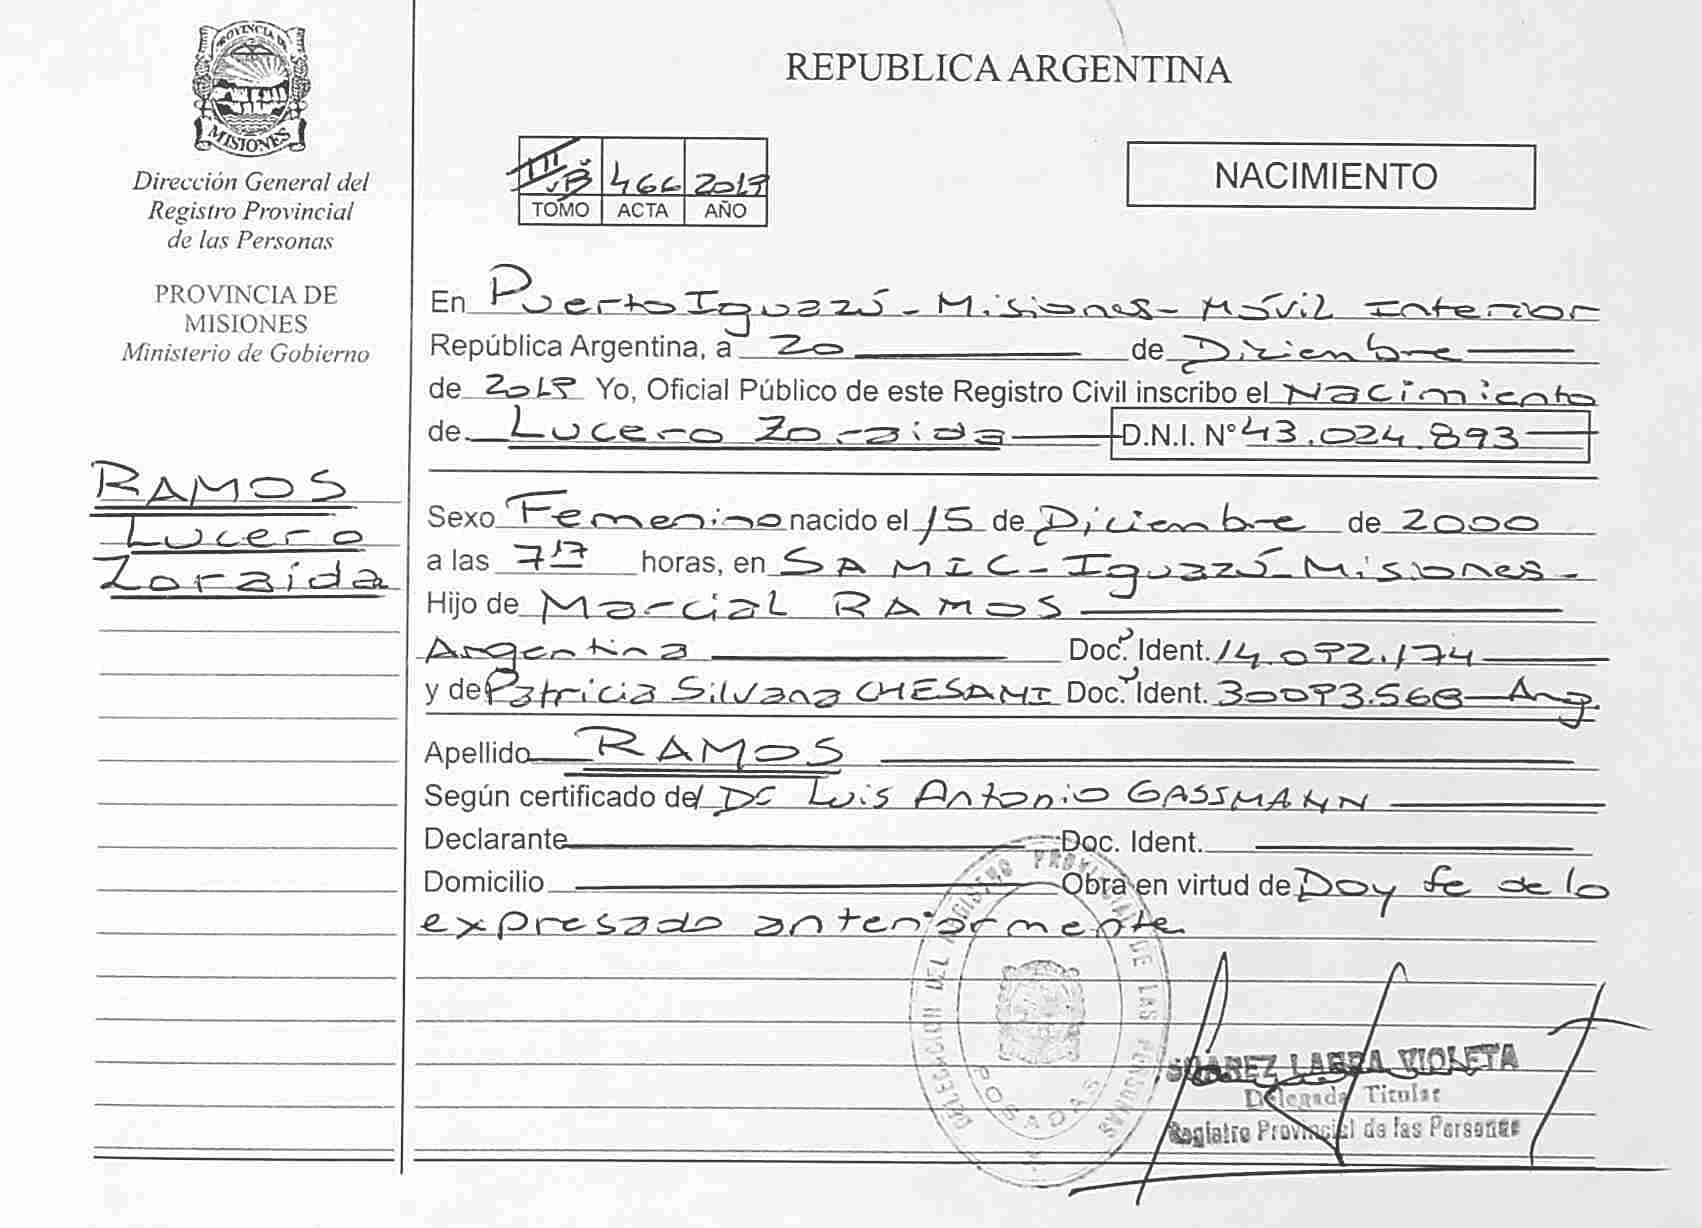 PROVINCIA DE
MISIONES
Dirección General del
Registro Provincial
de las Personas
PROVINCIA DE
MISIONES
Ministerio de Gobierno
RAMOS
Lucero
Zoraida
REPUBLICA ARGENTINA
466
TOMO ACTA AÑO
NACIMIENTO
En Puerto Iguazú - Misiones - Móvil Interior
República Argentina, a 20 de Diciembre
de Yo, Oficial Público de este Registro Civil inscribo el Nacimiento
de Lucero Zoraida D.N.I. N° 43.024.893
Sexo Femenino nacido el 15 de Diciembre de 2000
a las 7 17 horas, en SAMIC - Iguazú - Misiones -
Hijo de Marcial RAMOS
Argentina Doc. Ident. 14.092.174
y de Patricia Silvana Doc. Ident. 30093.568 Arg.
Apellido RAMOS
Según certificado del Dr Luis Antonio GASSMANN
Declarante Doc. Ident.
Domicilio Obra en virtud de Doy fe de lo
expresado anteriormente
DELEGACION DEL REGISTRO PROVINCIAL DE LAS PERSONAS
POSADAS
SUAREZ VIOLETA
Delegada Titular
Registro Provincial de las Personas